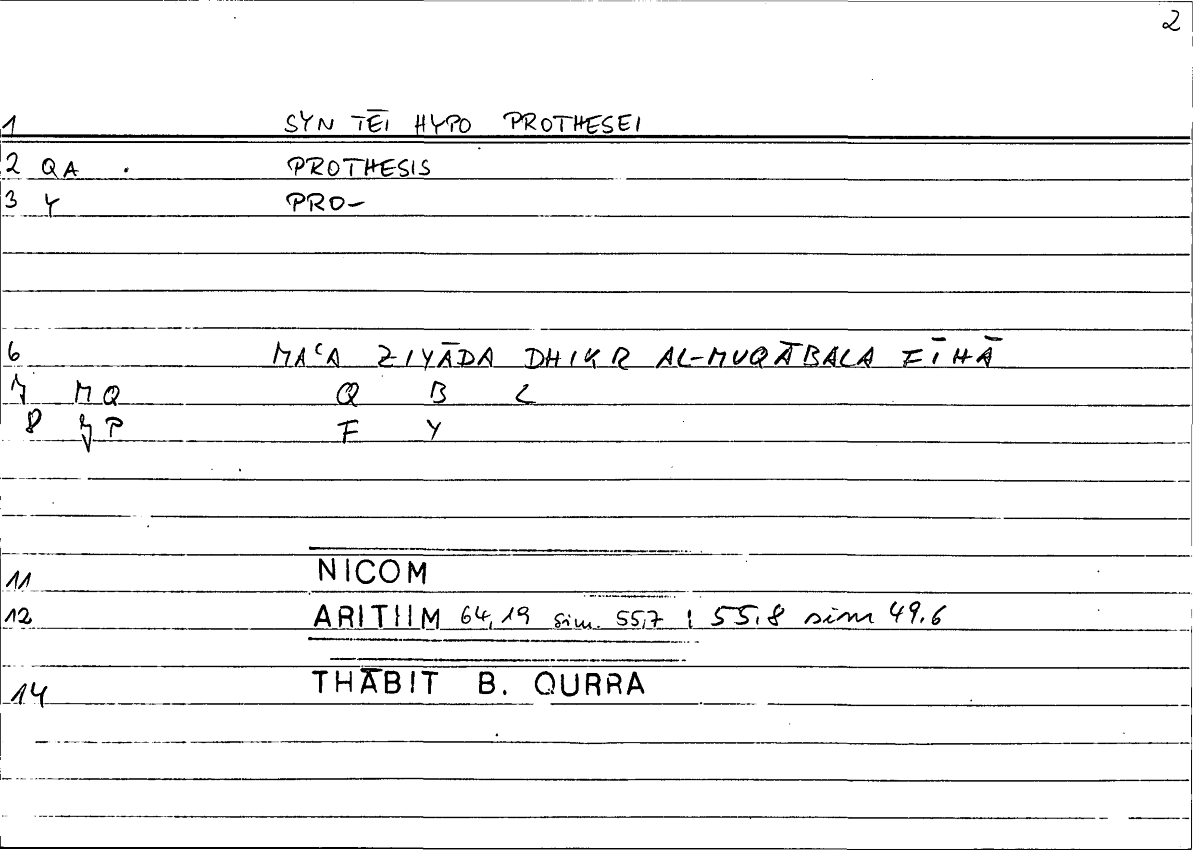 2
1 SYN TĒI HYPO PROTHESEI
2 QA . PROTHESIS
3 Y PRO-
6 MAʿA ZIYĀDA DHIKR AL-MUQĀBALA FĪHĀ
7 MQ Q B L
8 P F Y
11 NICOM
12 ARITIIM 64,19 sim. 55,7 ; 55,8 sim 49,6
14 THĀBIT B. QURRA